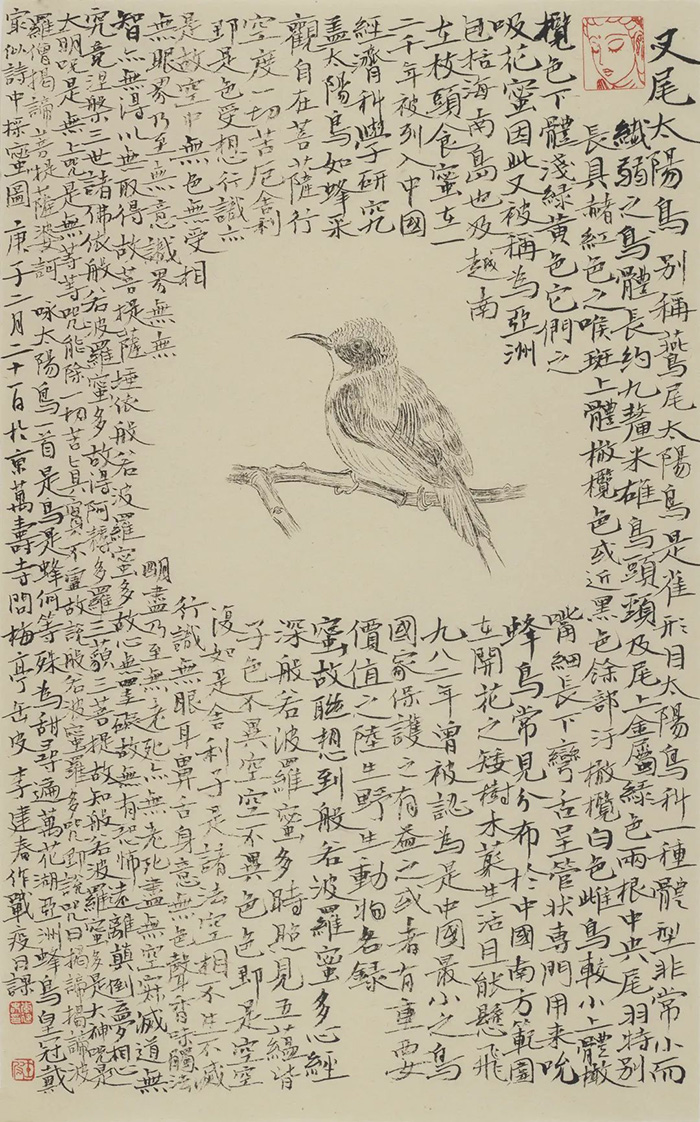 叉尾太陽鳥別稱燕尾太陽鳥是雀形目太陽鳥科一種體型非常小而
纖弱之鳥體長約九釐米雄鳥頭頸及尾上金屬綠色兩根中央尾羽特別
長具赭紅色之喉斑上體橄欖色或近黑色餘部汙橄欖白色雌鳥較小上體橄
欖色下體淺綠黃色它們之
嘴細長下彎舌呈管狀專門用來吮
吸花蜜因此又被稱為亞洲
蜂鳥常見分布於中國南方範圍
包括海南島也及越南
在開花之矮樹木叢生活且能懸飛
在枝頭食蜜在一
九八二年曾被認為是中國最小之鳥
二千年被列入中國
國家保護之有益之或者有重要
經濟科學研究
價值之陸生野生動物名錄
盖太陽鳥如蜂采
蜜故聯想到般若波羅蜜多心經
觀自在菩薩行
深般若波羅蜜多時照見五蘊皆
空度一切苦厄舍利
子色不異空空不異色色即是空空
即是色受想行識亦
復如是舍利子是諸法空相不生不滅
是故空中無色無受相
行識無眼耳鼻舌身意無色聲香味觸法
無眼界乃至無意識界無無
明盡乃至無老死亦無老死盡無空寂滅道無
智亦無得以無取得故菩提薩埵依般若波羅蜜多故心無罣礙故無有恐怖遠離顛倒夢相心
究竟涅槃三世諸佛依般若波羅蜜多故得阿耨多羅三藐三菩提故知般若波羅蜜多是大神咒是
大明咒是無上咒是無等等咒能除一切苦真實不虛故說般若波蜜羅多咒即說咒曰揭諦揭諦波
羅僧揭諦菩提薩婆訶 咏太陽鳥一首是鳥是蜂何等殊為甜尋遍萬花湖亞洲蜂鳥皇冠戴
宛似詩中採蜜圖 庚子二月二十一日於京萬壽寺問梅亭缶皮李建春作戰疫日課